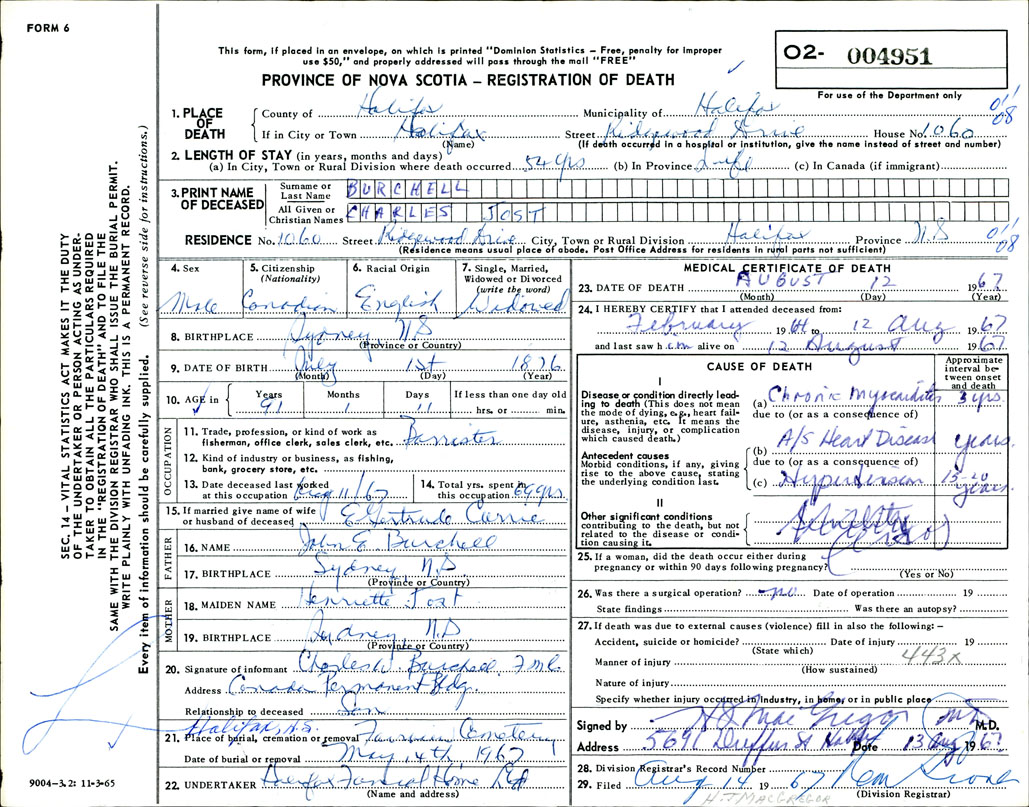 FORM 6
This form, if placed in an envelope, on which is printed "Dominion Statistics – Free, penalty for improper
use $50," and properly addressed will pass through the mail "FREE"
PROVINCE OF NOVA SCOTIA – REGISTRATION OF DEATH
O2- 004951
For use of the Department only
1. PLACE OF DEATH
County of Halifax Municipality of Halifax
If in City or Town Halifax Street Ridgewood Drive House No. 1060
(Name) (If death occurred in a hospital or institution, give the name instead of street and number)
01'
08
2. LENGTH OF STAY (in years, months and days)
(a) In City, Town or Rural Division where death occurred 54 yrs (b) In Province Life (c) In Canada (if immigrant)
3. PRINT NAME OF DECEASED
Surname or Last Name BURCHELL
All Given or Christian Names CHARLES JOST
RESIDENCE No. 1060 Street Ridgewood Drive City, Town or Rural Division Halifax Province N.S
01'
08
(Residence means usual place of abode. Post Office Address for residents in rural parts not sufficient)
4. Sex
Male
5. Citizenship (Nationality)
Canadian
6. Racial Origin
English
7. Single, Married, Widowed or Divorced (write the word)
Widowed
8. BIRTHPLACE Sydney N.S
(Province or Country)
9. DATE OF BIRTH July 1st 1876
(Month) (Day) (Year)
10. AGE in Years Months Days If less than one day old
91 1 11 hrs. or min.
OCCUPATION
11. Trade, profession, or kind of work as
fisherman, office clerk, sales clerk, etc. Barrister
12. Kind of industry or business, as fishing,
bank, grocery store, etc.
13. Date deceased last worked
at this occupation Aug 11/67
14. Total yrs. spent in
this occupation 69 yrs
15. If married give name of wife
or husband of deceased E Gertrude Currie
FATHER
16. NAME John E Burchell
17. BIRTHPLACE Sydney N.S
(Province or Country)
MOTHER
18. MAIDEN NAME Henriette Jost
19. BIRTHPLACE Sydney, N.S
(Province or Country)
20. Signature of informant Charles Burchell
Address Canada Permanent Bldg.
Relationship to deceased Son
Halifax, N.S.
21. Place of burial, cremation or removal Cemetery
Date of burial or removal May, 4th 1967
22. UNDERTAKER Halifax Funeral Home Ltd
(Name and address)
MEDICAL CERTIFICATE OF DEATH
23. DATE OF DEATH AUGUST 12 1967
(Month) (Day) (Year)
24. I HEREBY CERTIFY that I attended deceased from:
February 19 to 12 Aug 1967
and last saw him alive on 12 August 1967
CAUSE OF DEATH
Approximate interval between onset and death
I
Disease or condition directly leading to death (This does not mean
the mode of dying, e.g., heart failure, asthenia, etc. It means the
disease, injury, or complication
which caused death.)
(a) Chronic Myocarditis 3 yrs.
due to (or as a consequence of)
Antecedent causes
Morbid conditions, if any, giving
rise to the above cause, stating
the underlying condition last.
(b) A/S Heart Disease years.
due to (or as a consequence of)
(c) Hypertension 15-20 years.
II
Other significant conditions
contributing to the death, but not
related to the disease or condition causing it.
25. If a woman, did the death occur either during
pregnancy or within 90 days following pregnancy?
(Yes or No)
26. Was there a surgical operation? no Date of operation 19
State findings Was there an autopsy?
27. If death was due to external causes (violence) fill in also the following: –
Accident, suicide or homicide? Date of injury 19
(State which)
443X
Manner of injury
(How sustained)
Nature of injury
Specify whether injury occurred in industry, in home, or in public place
Signed by H J MacGregor M.D.
Address 5691 Duffus St Halifax Date 13 Aug 1967
28. Division Registrar's Record Number
29. Filed Aug 14 1967
(Division Registrar)
H.J MACGREGOR
SEC. 14 – VITAL STATISTICS ACT MAKES IT THE DUTY
OF THE UNDERTAKER OR PERSON ACTING AS UNDER-
TAKER TO OBTAIN ALL THE PARTICULARS REQUIRED
IN THE "REGISTRATION OF DEATH" AND TO FILE THE
SAME WITH THE DIVISION REGISTRAR WHO SHALL ISSUE THE BURIAL PERMIT.
WRITE PLAINLY WITH UNFADING INK. THIS IS A PERMANENT RECORD.
Every item of information should be carefully supplied. (See reverse side for instructions.)
9004–3.2: 11-3-65